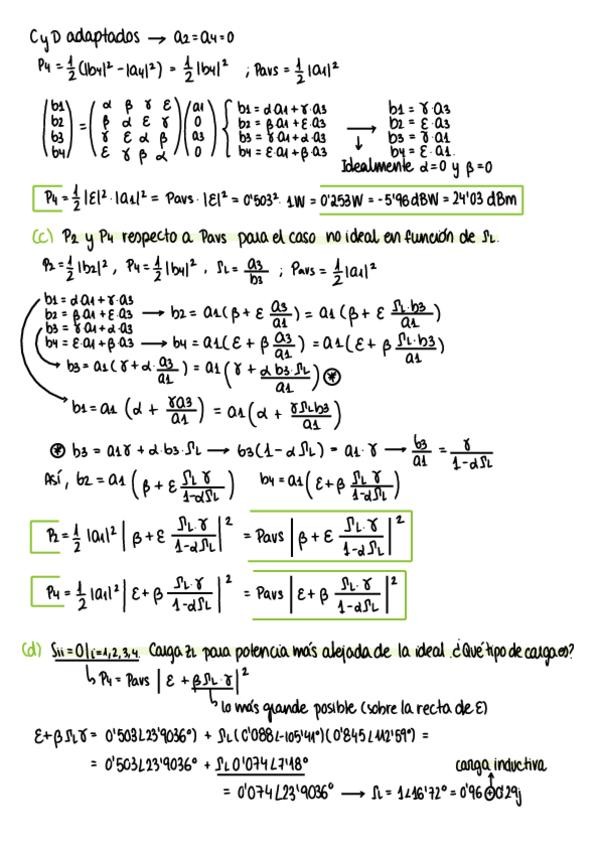 C y D adaptados → a2=a4=0
P4 = 1/2 (|b4|² - |a4|²) = 1/2 |b4|² ; Pavs = 1/2 |a1|²
(b1 b2 b3 b4) = (α β γ ε; β α ε γ; γ ε α β; ε γ β α) (a1 0 a3 0) { b1 = α a1 + γ·a3 → b1 = γ·a3
b2 = β a1 + ε·a3 b2 = ε·a3
b3 = γ a1 + α·a3 b3 = γ·a1
b4 = ε·a1 + β·a3 b4 = ε·a1.
Idealmente α=0 y β=0
P4 = 1/2 |ε|²·|a1|² = Pavs·|ε|² = 0'503²·1W = 0'253W = -5'96 dBW = 24'03 dBm
(c) P2 y P4 respecto a Pavs para el caso no ideal en función de ΓL.
P2 = 1/2 |b2|², P4 = 1/2 |b4|², ΓL = a3/b3 ; Pavs = 1/2 |a1|²
b1 = α a1 + γ·a3
b2 = β a1 + ε·a3 → b2 = a1 (β + ε a3/a1) = a1 (β + ε ΓL·b3/a1)
b3 = γ a1 + α·a3
b4 = ε·a1 + β·a3 → b4 = a1 (ε + β a3/a1) = a1 (ε + β ΓL·b3/a1)
b3 = a1 (γ + α·a3/a1) = a1 (γ + α b3·ΓL/a1) ⊛
b1 = a1 (α + γ a3/a1) = a1 (α + γ ΓL b3/a1)
⊛ b3 = a1 γ + α·b3·ΓL → b3 (1 - α ΓL) = a1·γ → b3/a1 = γ/1-αΓL
Así, b2 = a1 (β + ε ΓL γ/1-αΓL) b4 = a1 (ε + β ΓL γ/1-αΓL)
P2 = 1/2 |a1|² |β + ε ΓL·γ/1-αΓL|² = Pavs |β + ε ΓL·γ/1-αΓL|²
P4 = 1/2 |a1|² |ε + β ΓL·γ/1-αΓL|² = Pavs |ε + β ΓL·γ/1-αΓL|²
(d) Sii = 0|i=1,2,3,4. Carga ZL para potencia más alejada de la ideal. ¿Qué tipo de carga es?
↳ P4 = Pavs |ε + β ΓL·γ|²
↳ lo más grande posible (sobre la recta de ε)
ε + β ΓL γ = 0'503∠23'9036° + ΓL (0'088∠-105'41°)(0'845∠112'59°) =
= 0'503∠23'9036° + ΓL 0'074∠7'18°
carga inductiva
= 0'074∠23'9036° → ΓL = 1∠16'72° = 0'96 + 0'29j